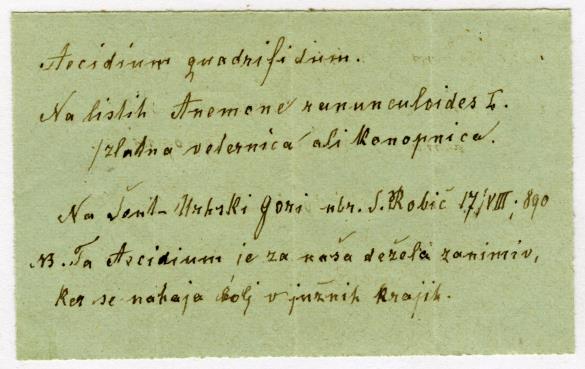 Aecidium quadrifidum.
Na listih Anemone rununculoides L.
/zlatna veternica ali Konopnica.
Na Šent-Urhski Gori nbr. S. Robič 17/VIII. 890
NB. Ta Aecidium je za naša dežela zanimiv,
ker se nahaja bolj v južnih krajih.